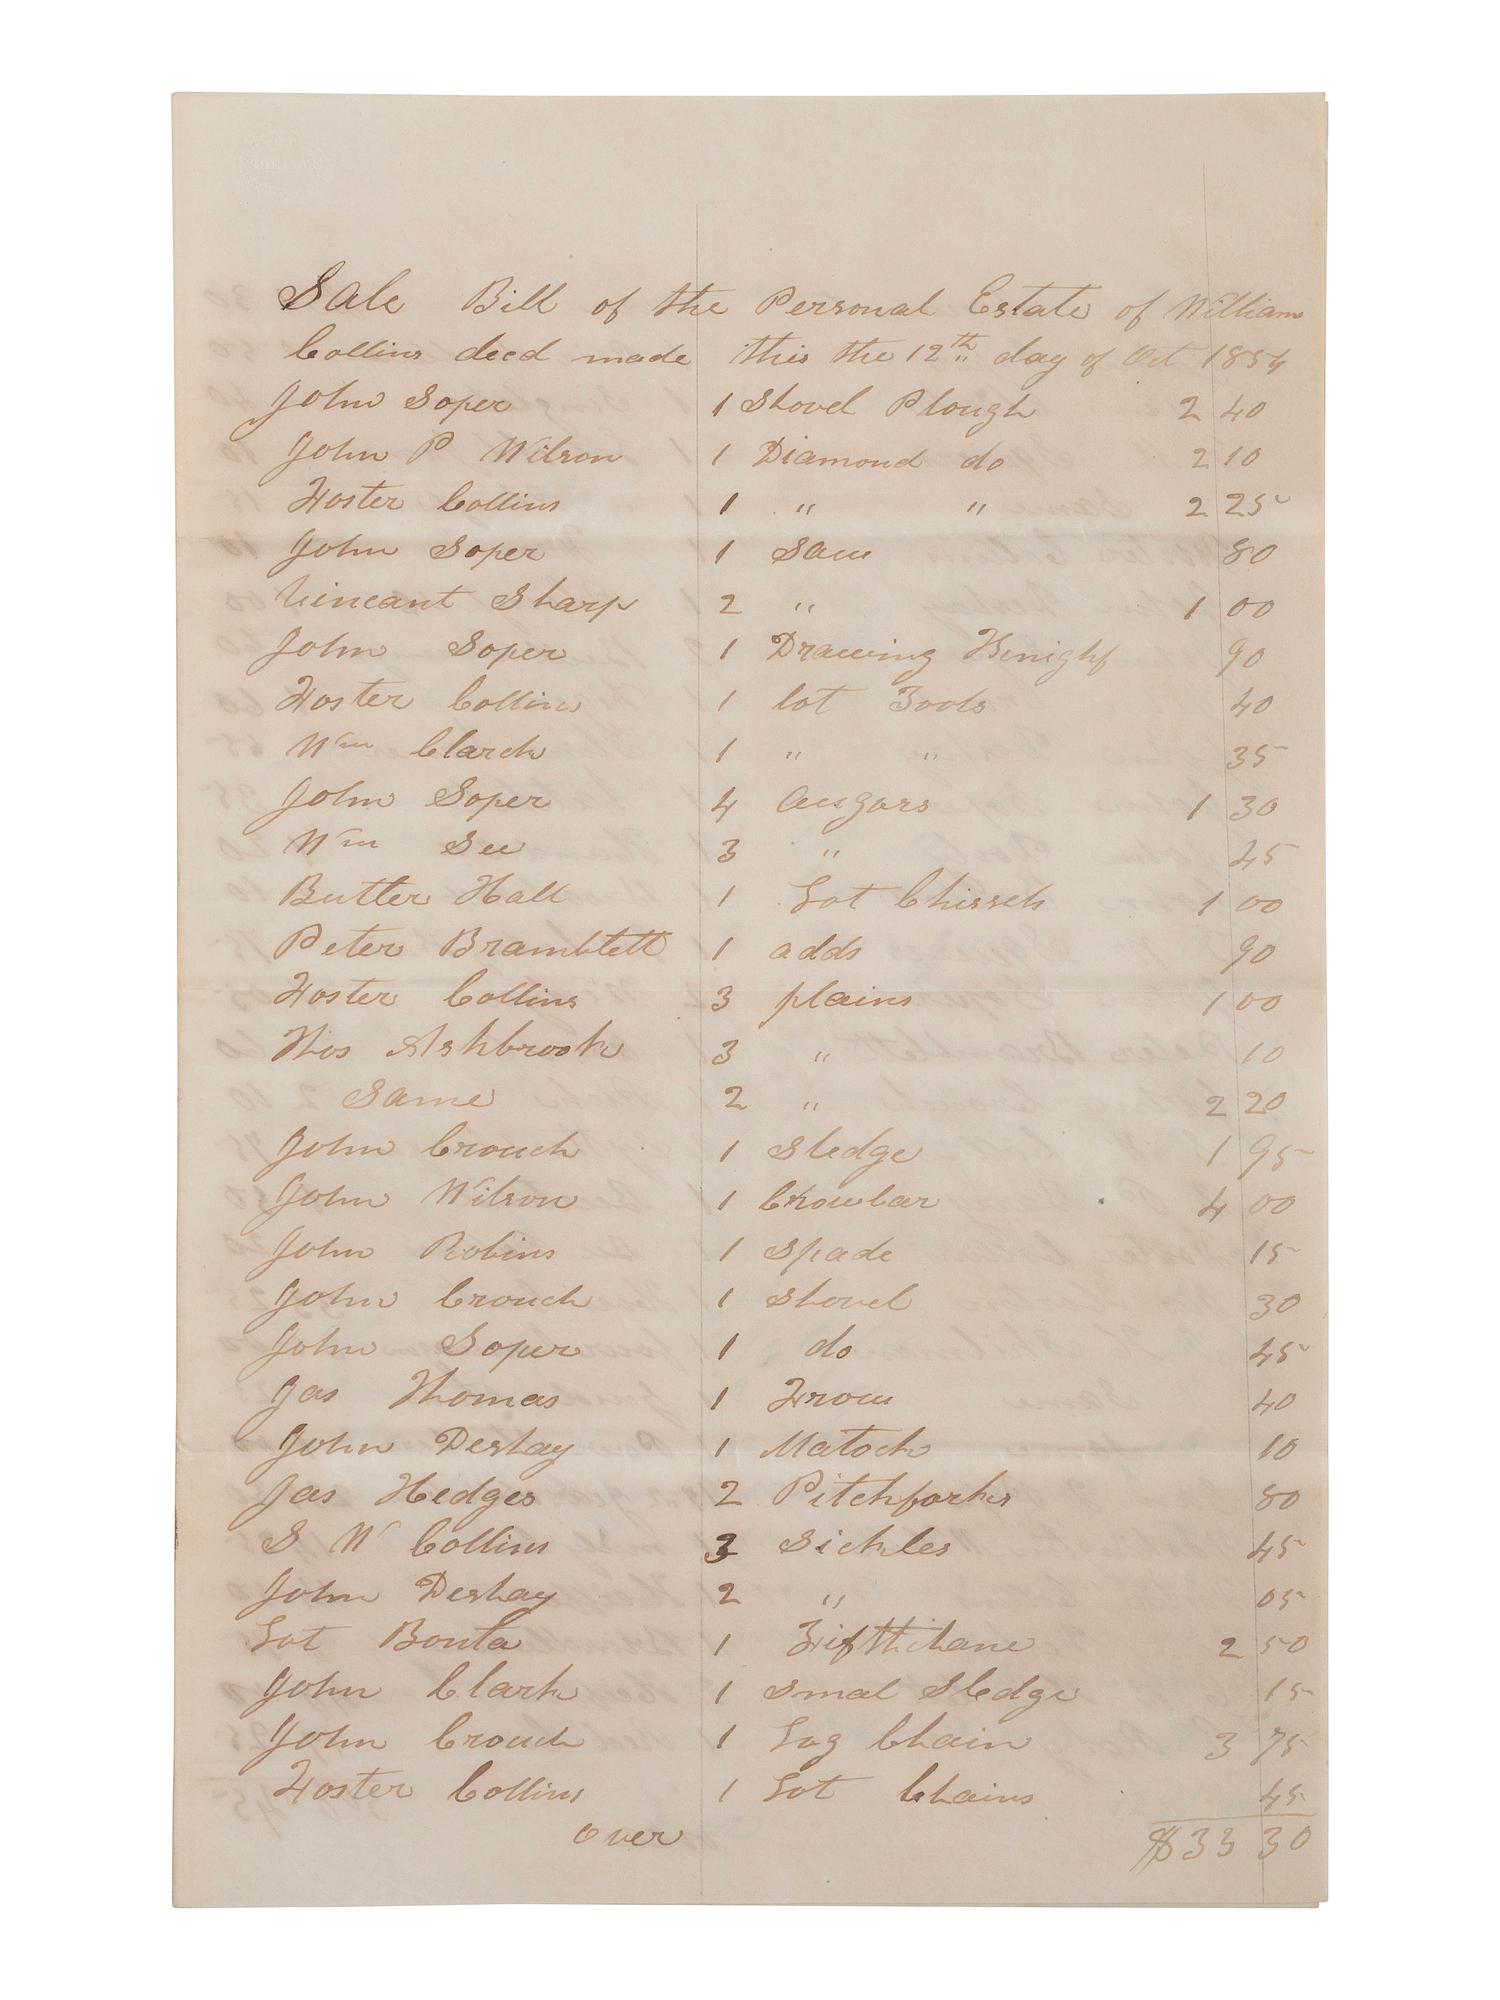 Sale Bill of the Personal Estate of William
Collins decd made this the 12th day of Oct 1854
John Soper 1 Shovel Plough 2 40
John P Wilson 1 Diamond do 2 10
Foster Collins 1 " " 2 25
John Soper 1 Saw 80
Vincant Sharp 2 " 1 00
John Soper 1 Drawing Kenighf 90
Foster Collins 1 lot Tools 40
Wm Clarck 1 " " 35
John Soper 4 Augars 1 30
Wm See 3 " 45
Butler Hall 1 Lot Chissels 1 00
Peter Bramblett 1 adds 90
Foster Collins 3 plains 1 00
Thos Ashbrook 3 " 10
Same 2 " 2 20
John Crouch 1 Sledge 1 95
John Wilson 1 Crowbar 4 00
John Robins 1 Spade 15
John Crouch 1 Shovel 30
John Soper 1 do 45
Jas Thomas 1 Frow 40
John Deshay 1 Matock 10
Jas Hedges 2 Pitchforks 80
S W Collins 3 Sickles 45
John Deshay 2 " 05
Lot Bonta 1 2 50
John Clark 1 Smal Sledge 15
John Crouch 1 Log Chain 3 75
Foster Collins 1 Lot Chains 45
over $33 30